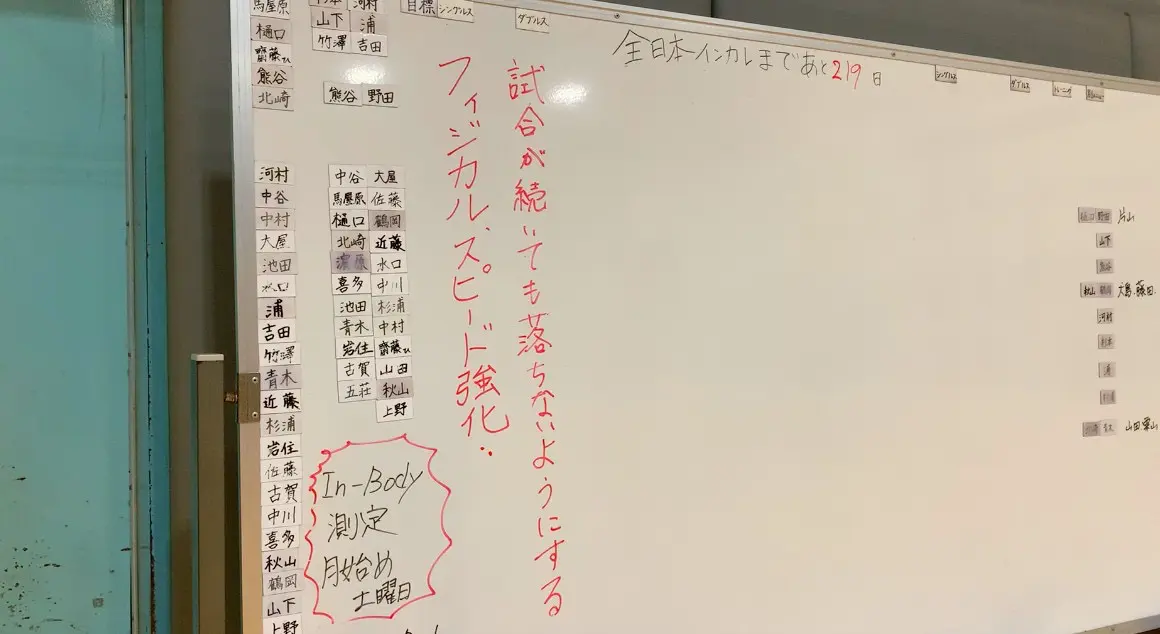 馬屋原
樋口
齋藤ひ
熊谷
北崎
河村
中谷
中村
大屋
池田
水口
浦
吉田
竹澤
青木
近藤
杉浦
岩住
佐藤
古賀
中川
喜多
秋山
鶴岡
山下
上野
河村
山下 浦
竹澤 吉田
熊谷 野田
中谷 大屋
馬屋原 佐藤
樋口 鶴岡
北崎 近藤
水口
喜多 中川
池田 杉浦
青木 中村
岩住 齋藤ひ
古賀 山田
五荘 秋山
上野
In-Body
測定
月始め
土曜日
目標
シングルス
ダブルス
フィジカル、スピード強化
試合が続いても落ちないようにする
全日本インカレまであと219日
シングルス
ダブルス
トレーニング
樋口 野田 片山
山下
熊谷
秋山 鶴岡 大島、藤田、
河村
杉本
浦
杉浦
山田 栗山